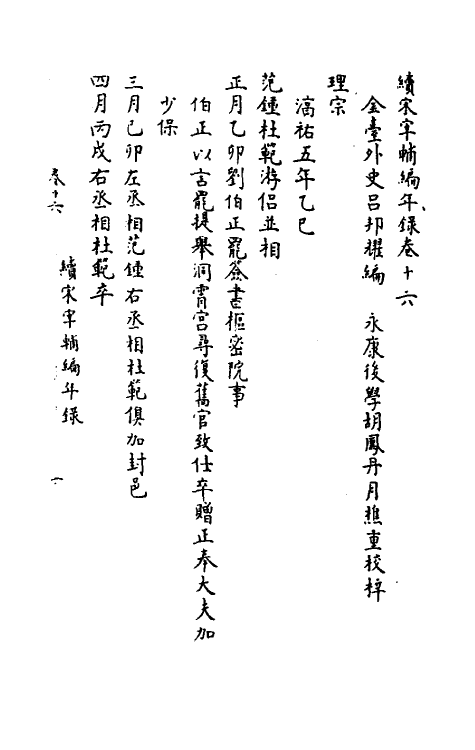 續宋宰輔編年錄卷十六
金臺外史呂邦耀編　永康後學胡鳳丹月樵重校梓
理宗
淳祐五年乙巳
范鍾杜範游侣並相
正月乙卯劉伯正罷簽書樞密院事
伯正以言罷提舉洞霄宮尋復舊官致仕卒贈正奉大夫加
少保
三月己卯左丞相范鍾右丞相杜範俱加封邑
四月丙戌右丞相杜範卒
卷十六　續宋宰輔編年錄　一